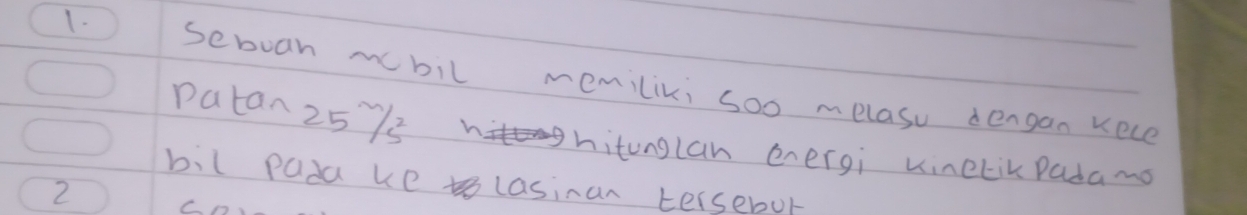 1. Sebuah mobil memiliki 500 melasu dengan kece
Patan 25 m/s² hitunglah energi kinetik Pada mo
bil pada ke lasinan tersebut
2